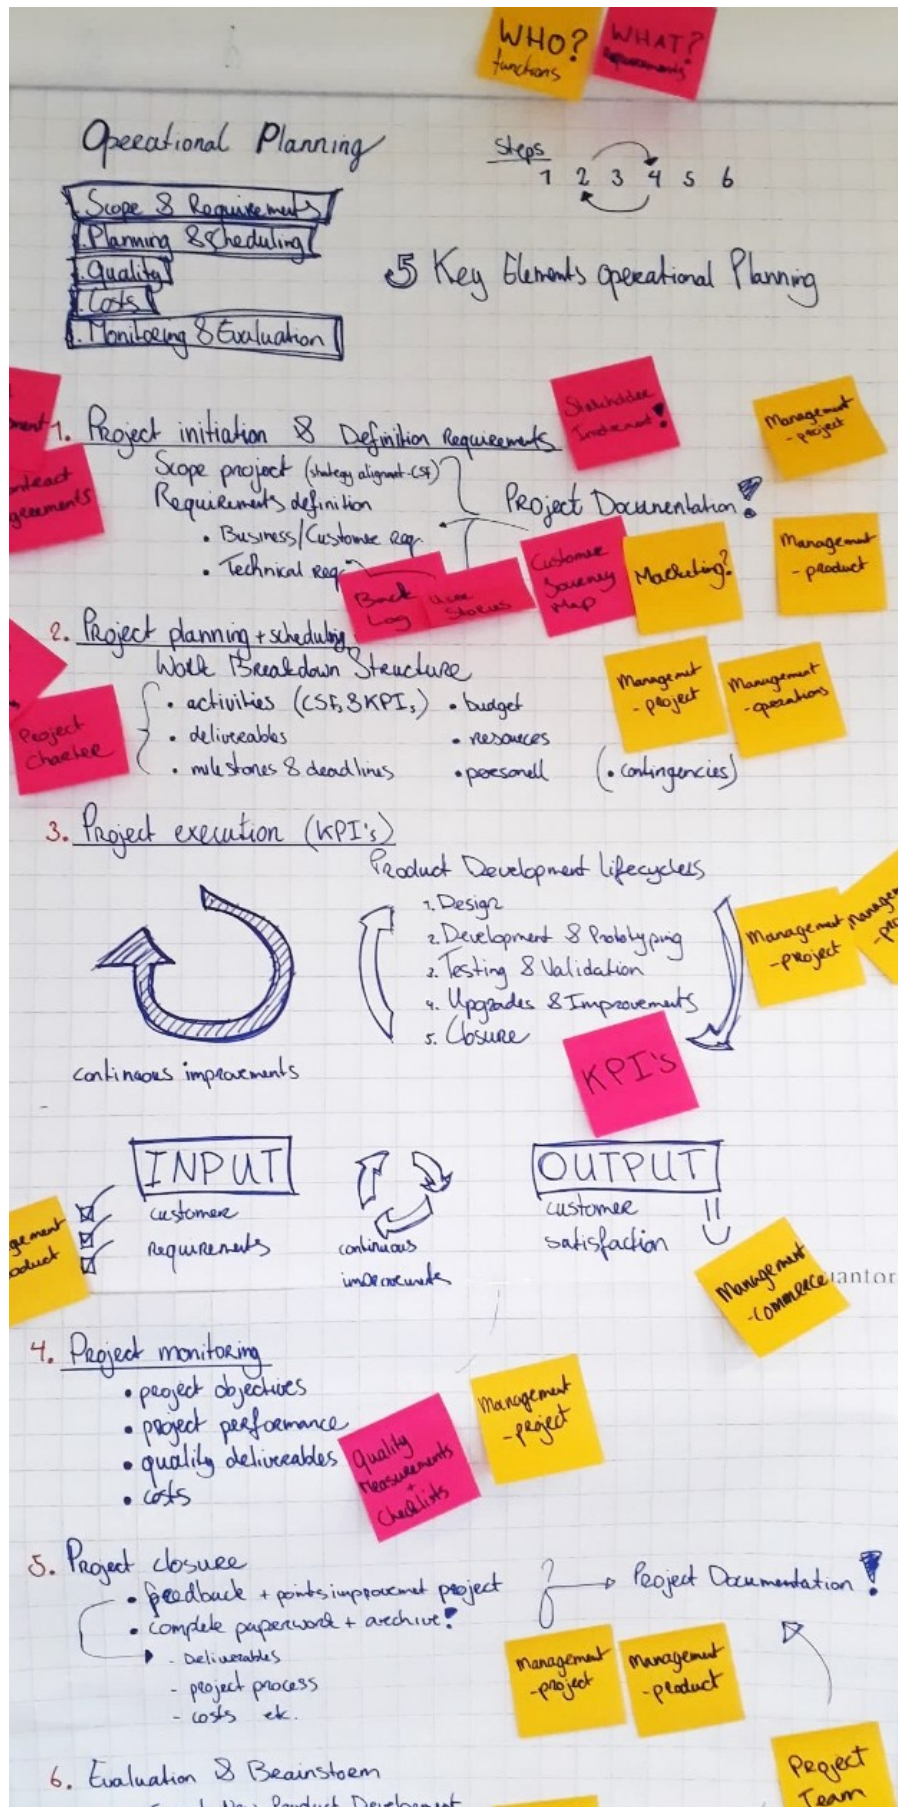 WHO?
functions
WHAT?
Requirements
Operational Planning
Steps
1 2 3 4 5 6
Scope & Requirements
Planning & Scheduling
Quality
Costs
Monitoring & Evaluation
5 Key Elements operational Planning
1. Project initiation & Definition Requirements
Stakeholder
Involvement!
Management
- project
Scope project (strategy alignmt-CSF)
Requirements definition
• Business/Customer req.
• Technical req.
Project Documentation!
Back
Log
User
Customer
Journey
Map
Marketing?
Management
- product
2. Project planning + scheduling
Work Breakdown Structure
• activities (CSFs & KPIs)
• deliverables
• milestones & deadlines
• budget
• resources
• personell
(• contingencies)
Project
Charter
Management
- project
Management
- operations
3. Project execution (KPI's)
Product Development lifecyclers
1. Design
2. Development & Prototyping
3. Testing & Validation
4. Upgrades & Improvements
5. Closure
continuous improvements
KPI's
Management
- project
INPUT
customer
requirements
continuous
improvements
OUTPUT
customer
satisfaction
Management
- commerce
uantor
4. Project monitoring
• project objectives
• project performance
• quality deliverables
• costs
Quality
Measurements
+
Checklists
Management
- project
5. Project closure
• feedback + points improvemet project
• complete paperwork + archive!
- Deliverables
- project process
- costs etc.
Project Documentation!
Management
- project
Management
- product
Project
Team
6. Evaluation & Brainstorm
New Product Development